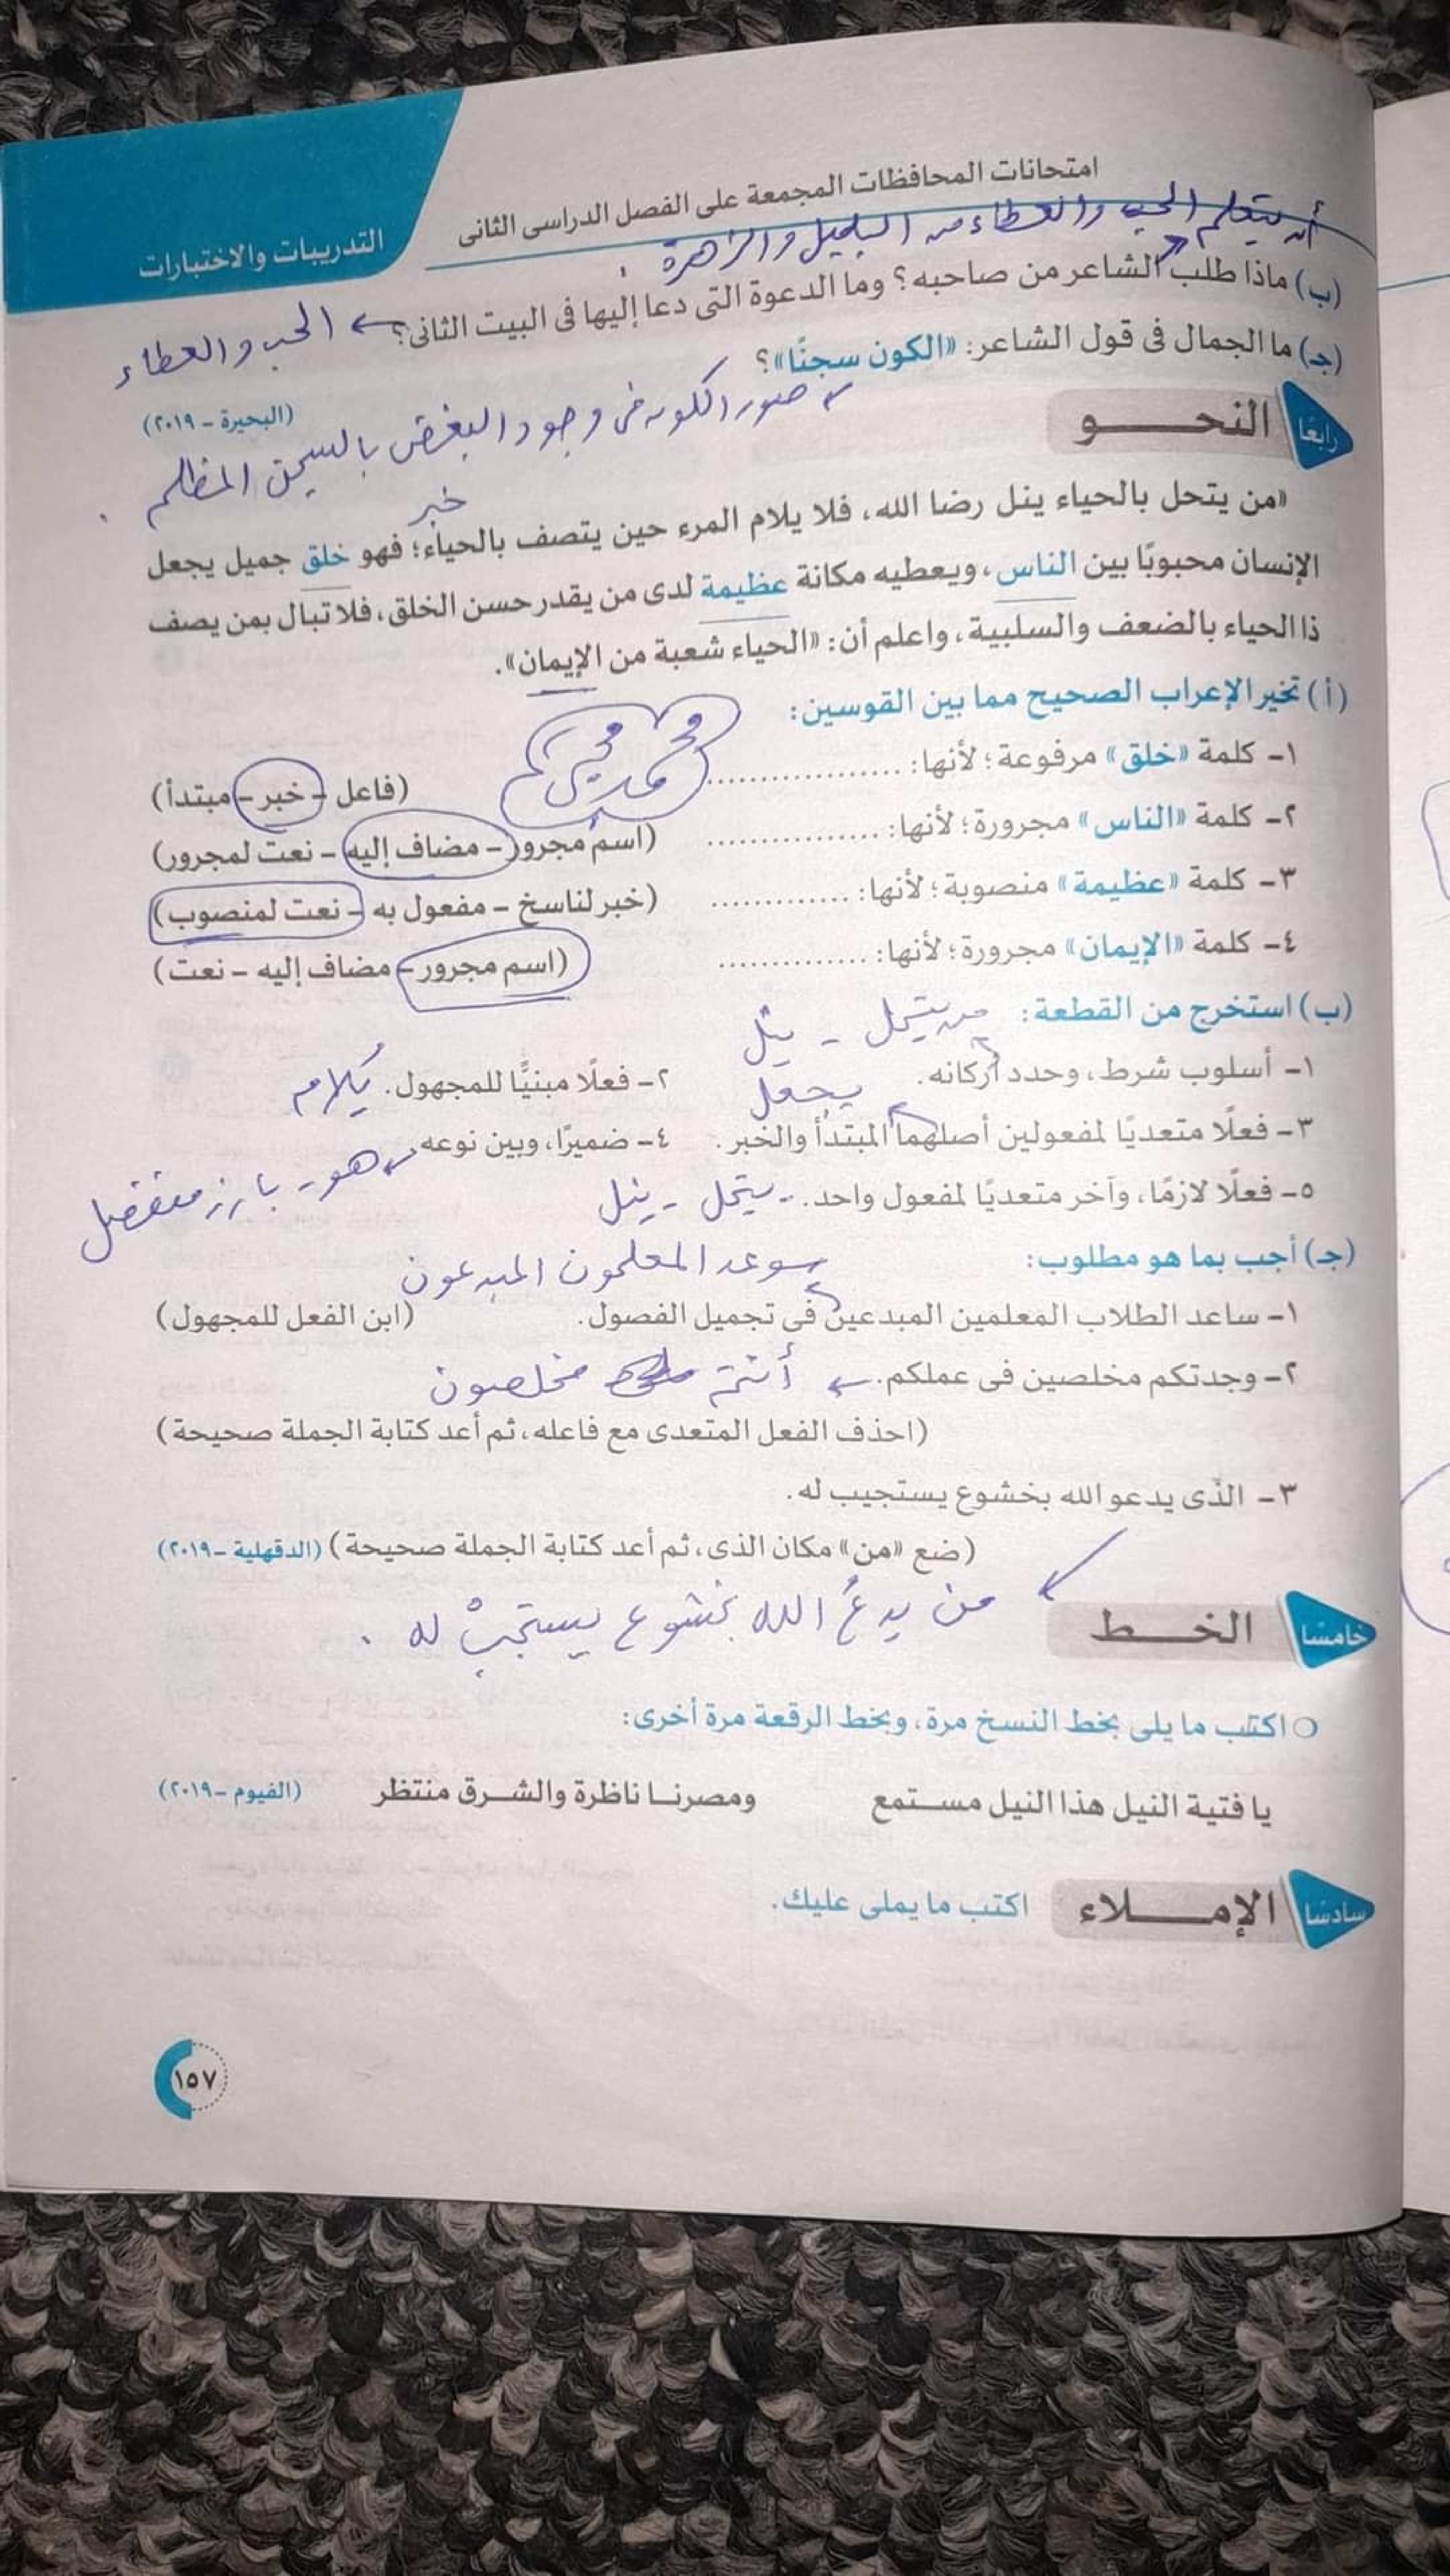 امتحانات المحافظات المجمعة على الفصل الدراسى الثانى
التدريبات والاختبارات
أن يتعلم الحب والعطاء من البلبل والزهرة .
(ب) ماذا طلب الشاعر من صاحبه؟ وما الدعوة التى دعا إليها فى البيت الثانى؟ ← الحب والعطاء
(جـ) ما الجمال فى قول الشاعر: «الكون سجنًا»؟
صور الكون فى وجود البغض بالسجن المظلم .
(البحيرة - ٢٠١٩)
رابعًا النحـــو
خبر
«من يتحل بالحياء ينل رضا الله، فلا يلام المرء حين يتصف بالحياء؛ فهو خلق جميل يجعل
الإنسان محبوبًا بين الناس، ويعطيه مكانة عظيمة لدى من يقدر حسن الخلق، فلا تبال بمن يصف
ذا الحياء بالضعف والسلبية، واعلم أن: «الحياء شعبة من الإيمان».
(أ) تخير الإعراب الصحيح مما بين القوسين:
١- كلمة «خلق» مرفوعة؛ لأنها: .................. (فاعل - خبر - مبتدأ)
٢- كلمة «الناس» مجرورة؛ لأنها: ................ (اسم مجرور - مضاف إليه - نعت لمجرور)
٣- كلمة «عظيمة» منصوبة؛ لأنها: ............. (خبر لناسخ - مفعول به - نعت لمنصوب)
٤- كلمة «الإيمان» مجرورة؛ لأنها: .............. (اسم مجرور - مضاف إليه - نعت)
(ب) استخرج من القطعة: من يتحل - ينل
١- أسلوب شرط، وحدد أركانه. ٢- فعلًا مبنيًّا للمجهول. يُلام
يجعل
٣- فعلًا متعديًا لمفعولين أصلهما المبتدأ والخبر. ٤- ضميرًا، وبين نوعه هو - بارز منفصل
٥- فعلًا لازمًا، وآخر متعديًا لمفعول واحد. يتحل - ينل
(جـ) أجب بما هو مطلوب:
سوعد المعلمون المبدعون
١- ساعد الطلاب المعلمين المبدعين فى تجميل الفصول. (ابن الفعل للمجهول)
٢- وجدتكم مخلصين فى عملكم. ← أنتم مخلصون
(احذف الفعل المتعدى مع فاعله، ثم أعد كتابة الجملة صحيحة)
٣- الذى يدعو الله بخشوع يستجيب له.
(ضع «من» مكان الذى، ثم أعد كتابة الجملة صحيحة) (الدقهلية - ٢٠١٩)
من يدعُ الله بخشوع يستجبْ له .
خامسًا الخـــط
اكتب ما يلى بخط النسخ مرة، وبخط الرقعة مرة أخرى:
يا فتية النيل هذا النيل مستمع ومصرنا ناظرة والشرق منتظر (الفيوم - ٢٠١٩)
سادسًا الإمـــلاء اكتب ما يملى عليك.
١٥٧